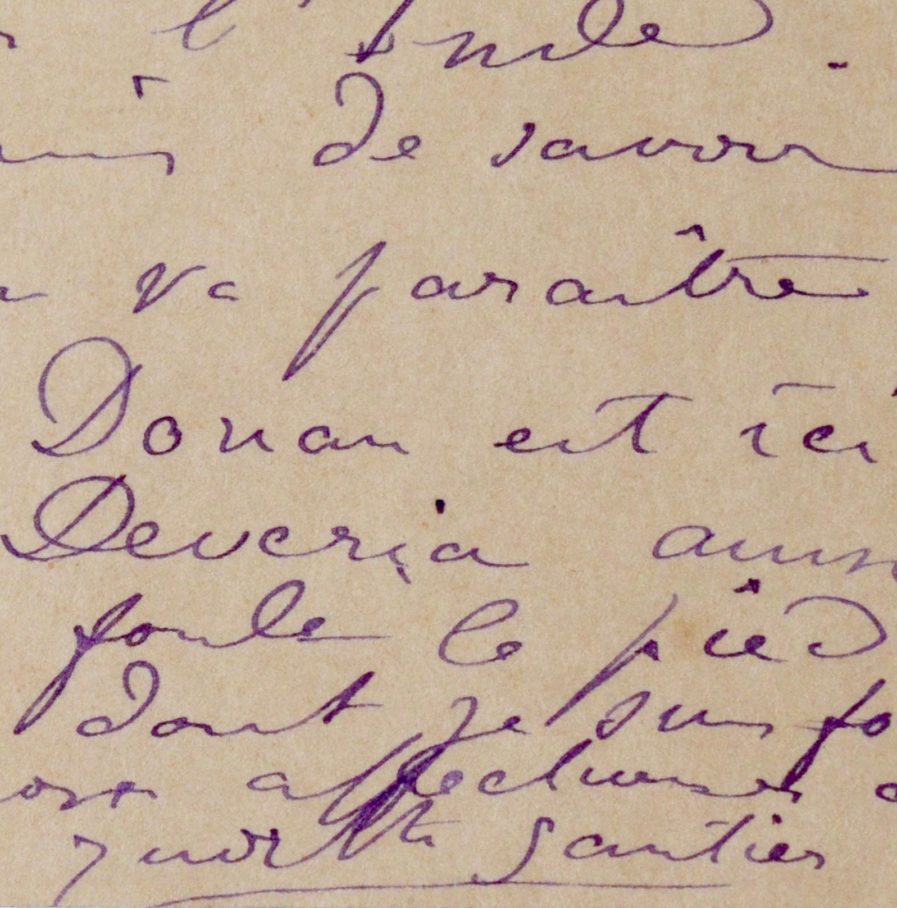 l'Inde.
de savoir
va paraître
Donan est ici
Deveria aussi
foule le pied
dont je suis fo
affectueuses
Judith Gautier